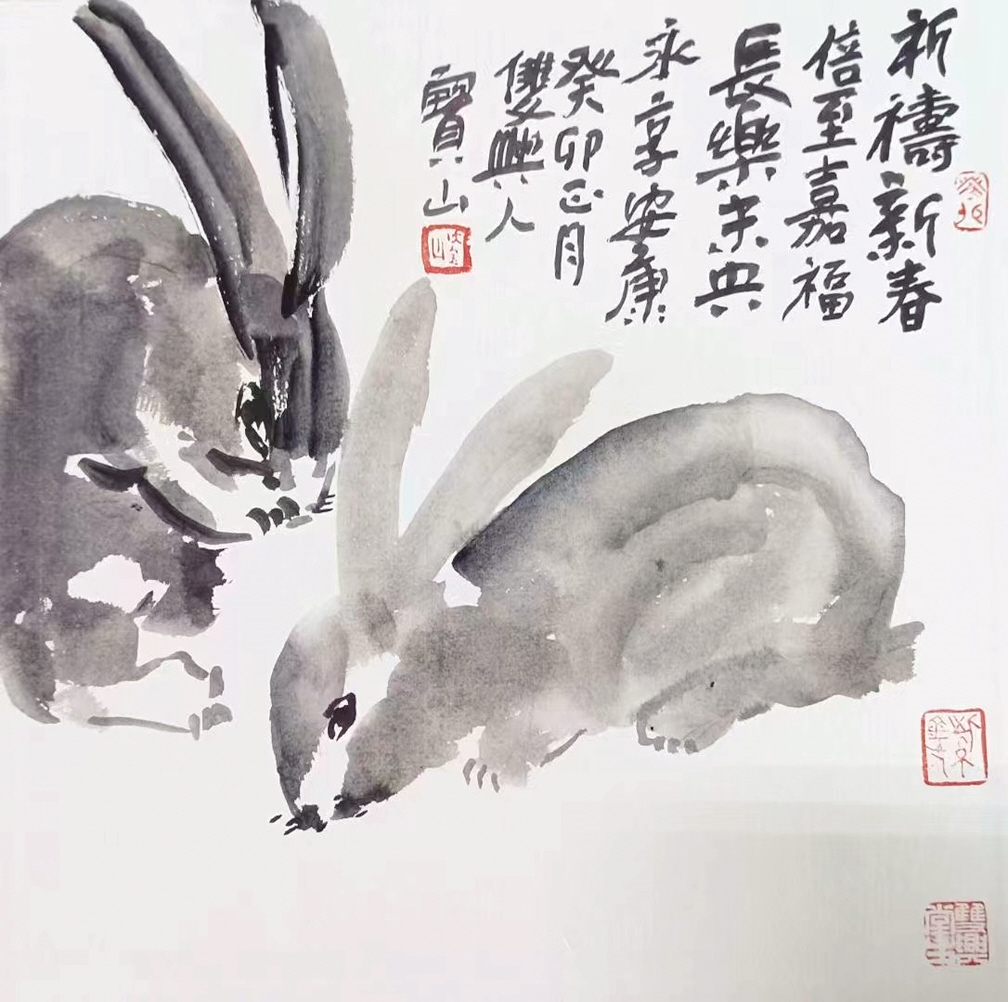 祈禱新春
倍至嘉福
長樂未央
永享安康
癸卯正月
雙興人
寶山